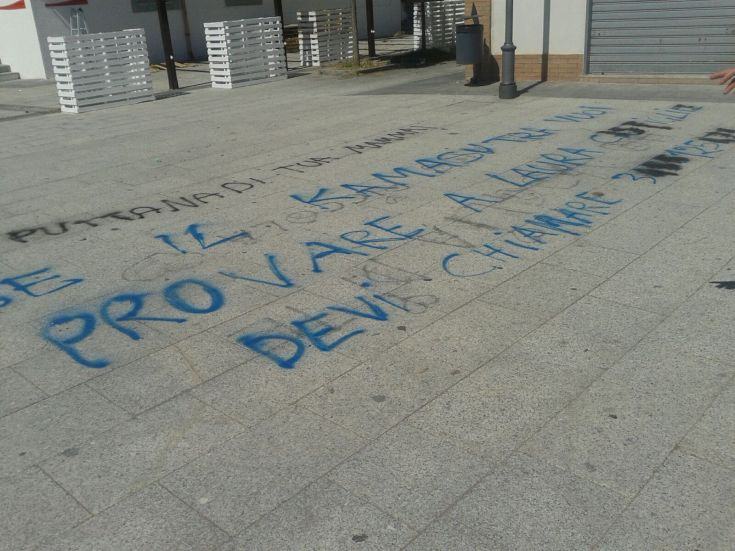 PUTTANA DI TUA MAMMA!!
SE IL KAMASUTRA VUOI
PROVARE A LAURA
DEVI CHIAMARE 3